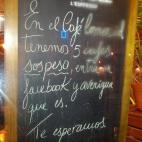 En el Café
tenemos 5 cafés
sospeso, entra en
facebook y averigua
que es.
Te esperamos